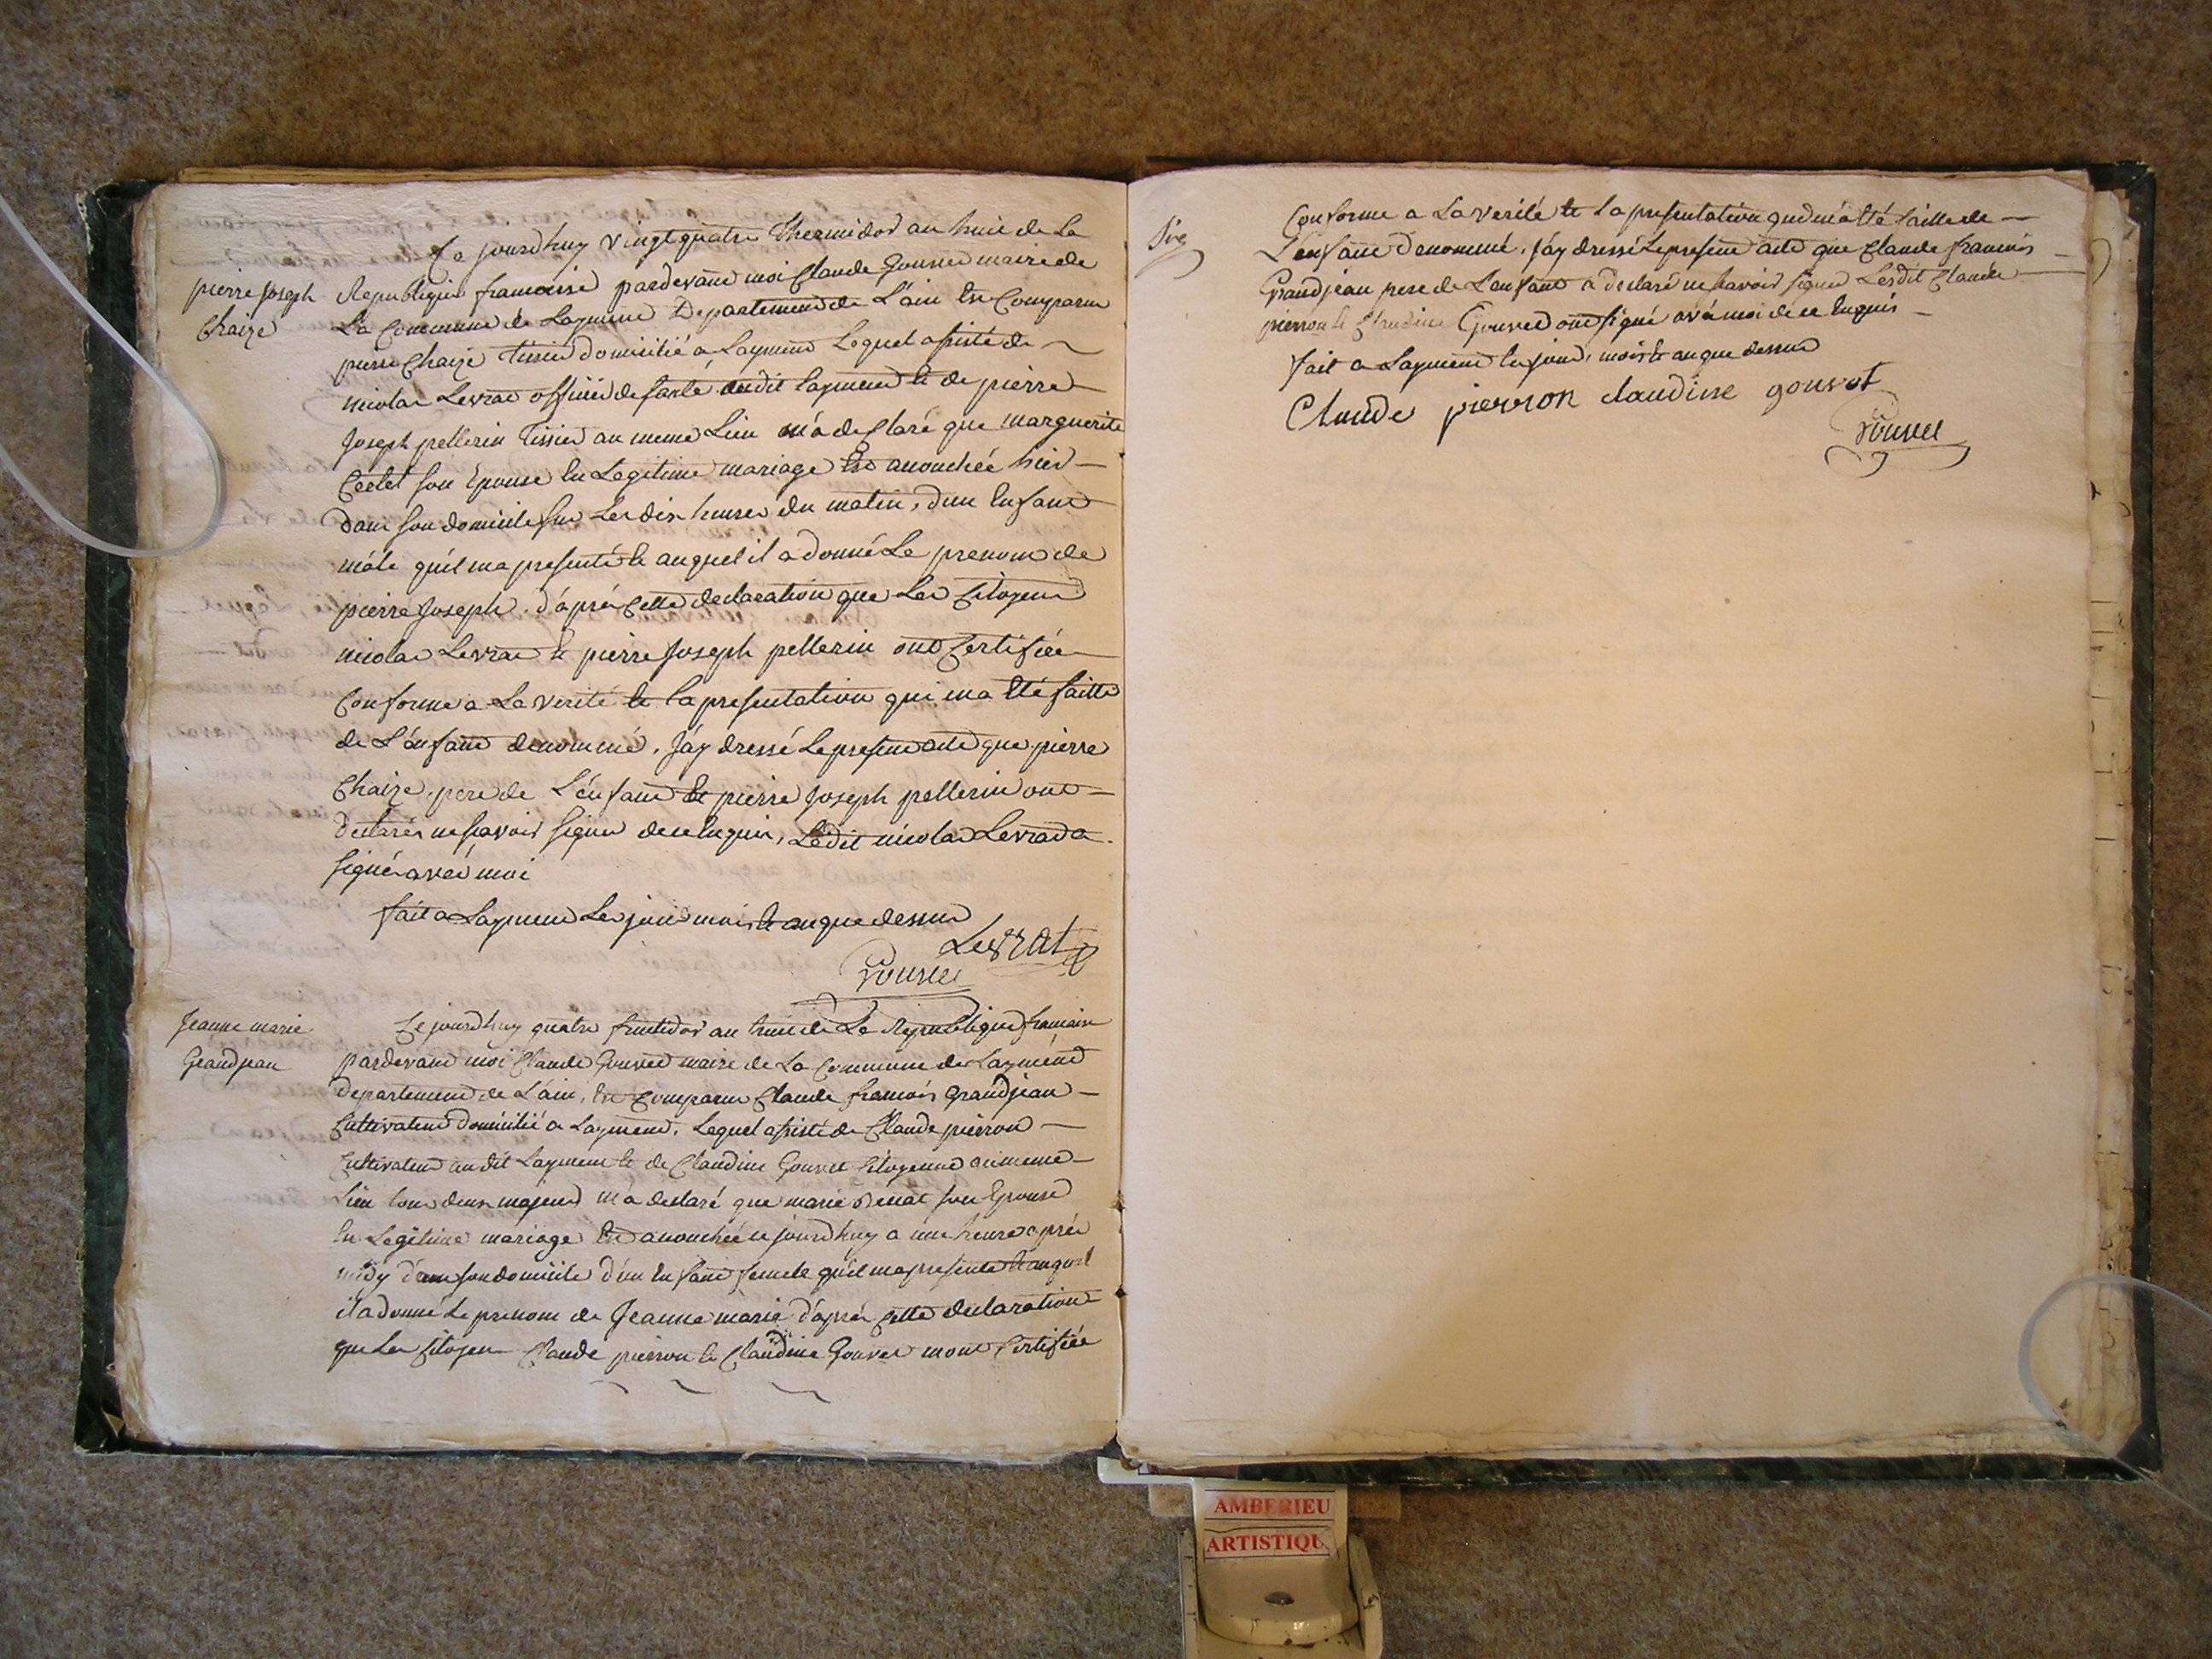 Ce jourdhuy vingt quatre Thermidor an huit de La
pierre Joseph
Chaize
Republique francoise pardevant moi Claude Gouvet maire de
La Commune de Laymend Departement de L'ain Est Comparu
pierre Chaize Tissier domicilié a Laymend Lequel assisté de
nicolas Levrat officié de santé audit Laymend et de pierre
Joseph pellerin Tissier au meme Lieu m'a declaré que marguerite
son Epouse En Legitime mariage Est acouchée hier
dans son domicile sur Les dix heures du matin, d'un Enfant
mâle qu'il ma presenté et auquel il a donné Le prenom de
pierre Joseph. d'aprés Cette declaration que Les Citoyens
nicolas Levrat et pierre Joseph pellerin ont Certifiée
Conforme a La verité et la presentation qui ma Eté faitte
de L'enfant denommé, J'ay dressé Le present acte que pierre
Chaize, pere de L'enfant Et pierre Joseph pellerin ont
declarés ne savoir signer de ce Enquis, Ledit nicolas Levrat a
signé avec moi
fait a Laymend Les jour mois et an que dessus
Levrat
Gouvet
Jeanne marie
Grandjean
Ce jourdhuy quatre fructidor an huit de La Republique francoise
pardevant moi Claude Gouvet maire de La Commune de Laymend
departement de L'ain, Est Comparu Claude francois Grandjean
Cultivateur domicilié a Laymend, Lequel assisté de Claude pierron
Cultivateur audit Laymend et de Claudine Gouvet Citoyenne au meme
Lieu tous deux majeurs m'a declaré que marie son Epouse
En Legitime mariage Est acouchée ce jourdhuy a une heure aprés
midy dans son domicile d'un Enfant femele qu'il ma presenté et auquel
il a donné Le prenom de Jeanne marie d'aprés Cette declaration
que Les Citoyens Claude pierron et Claudine Gouvet mont Certifiée
Conforme a La verité et la presentation qui m'a Eté faitte de
L'enfant denommé, J'ay dressé Le present acte que Claude francois
Grandjean pere de L'enfant a declaré ne savoir signer Lesdit Claude
pierron et Claudine Gouvet ont signé avec moi de ce Enquis
fait a Laymend les jour, mois et an que dessus
Claude pierron claudine gouvet
Gouvet
AMBERIEU
ARTISTIQU